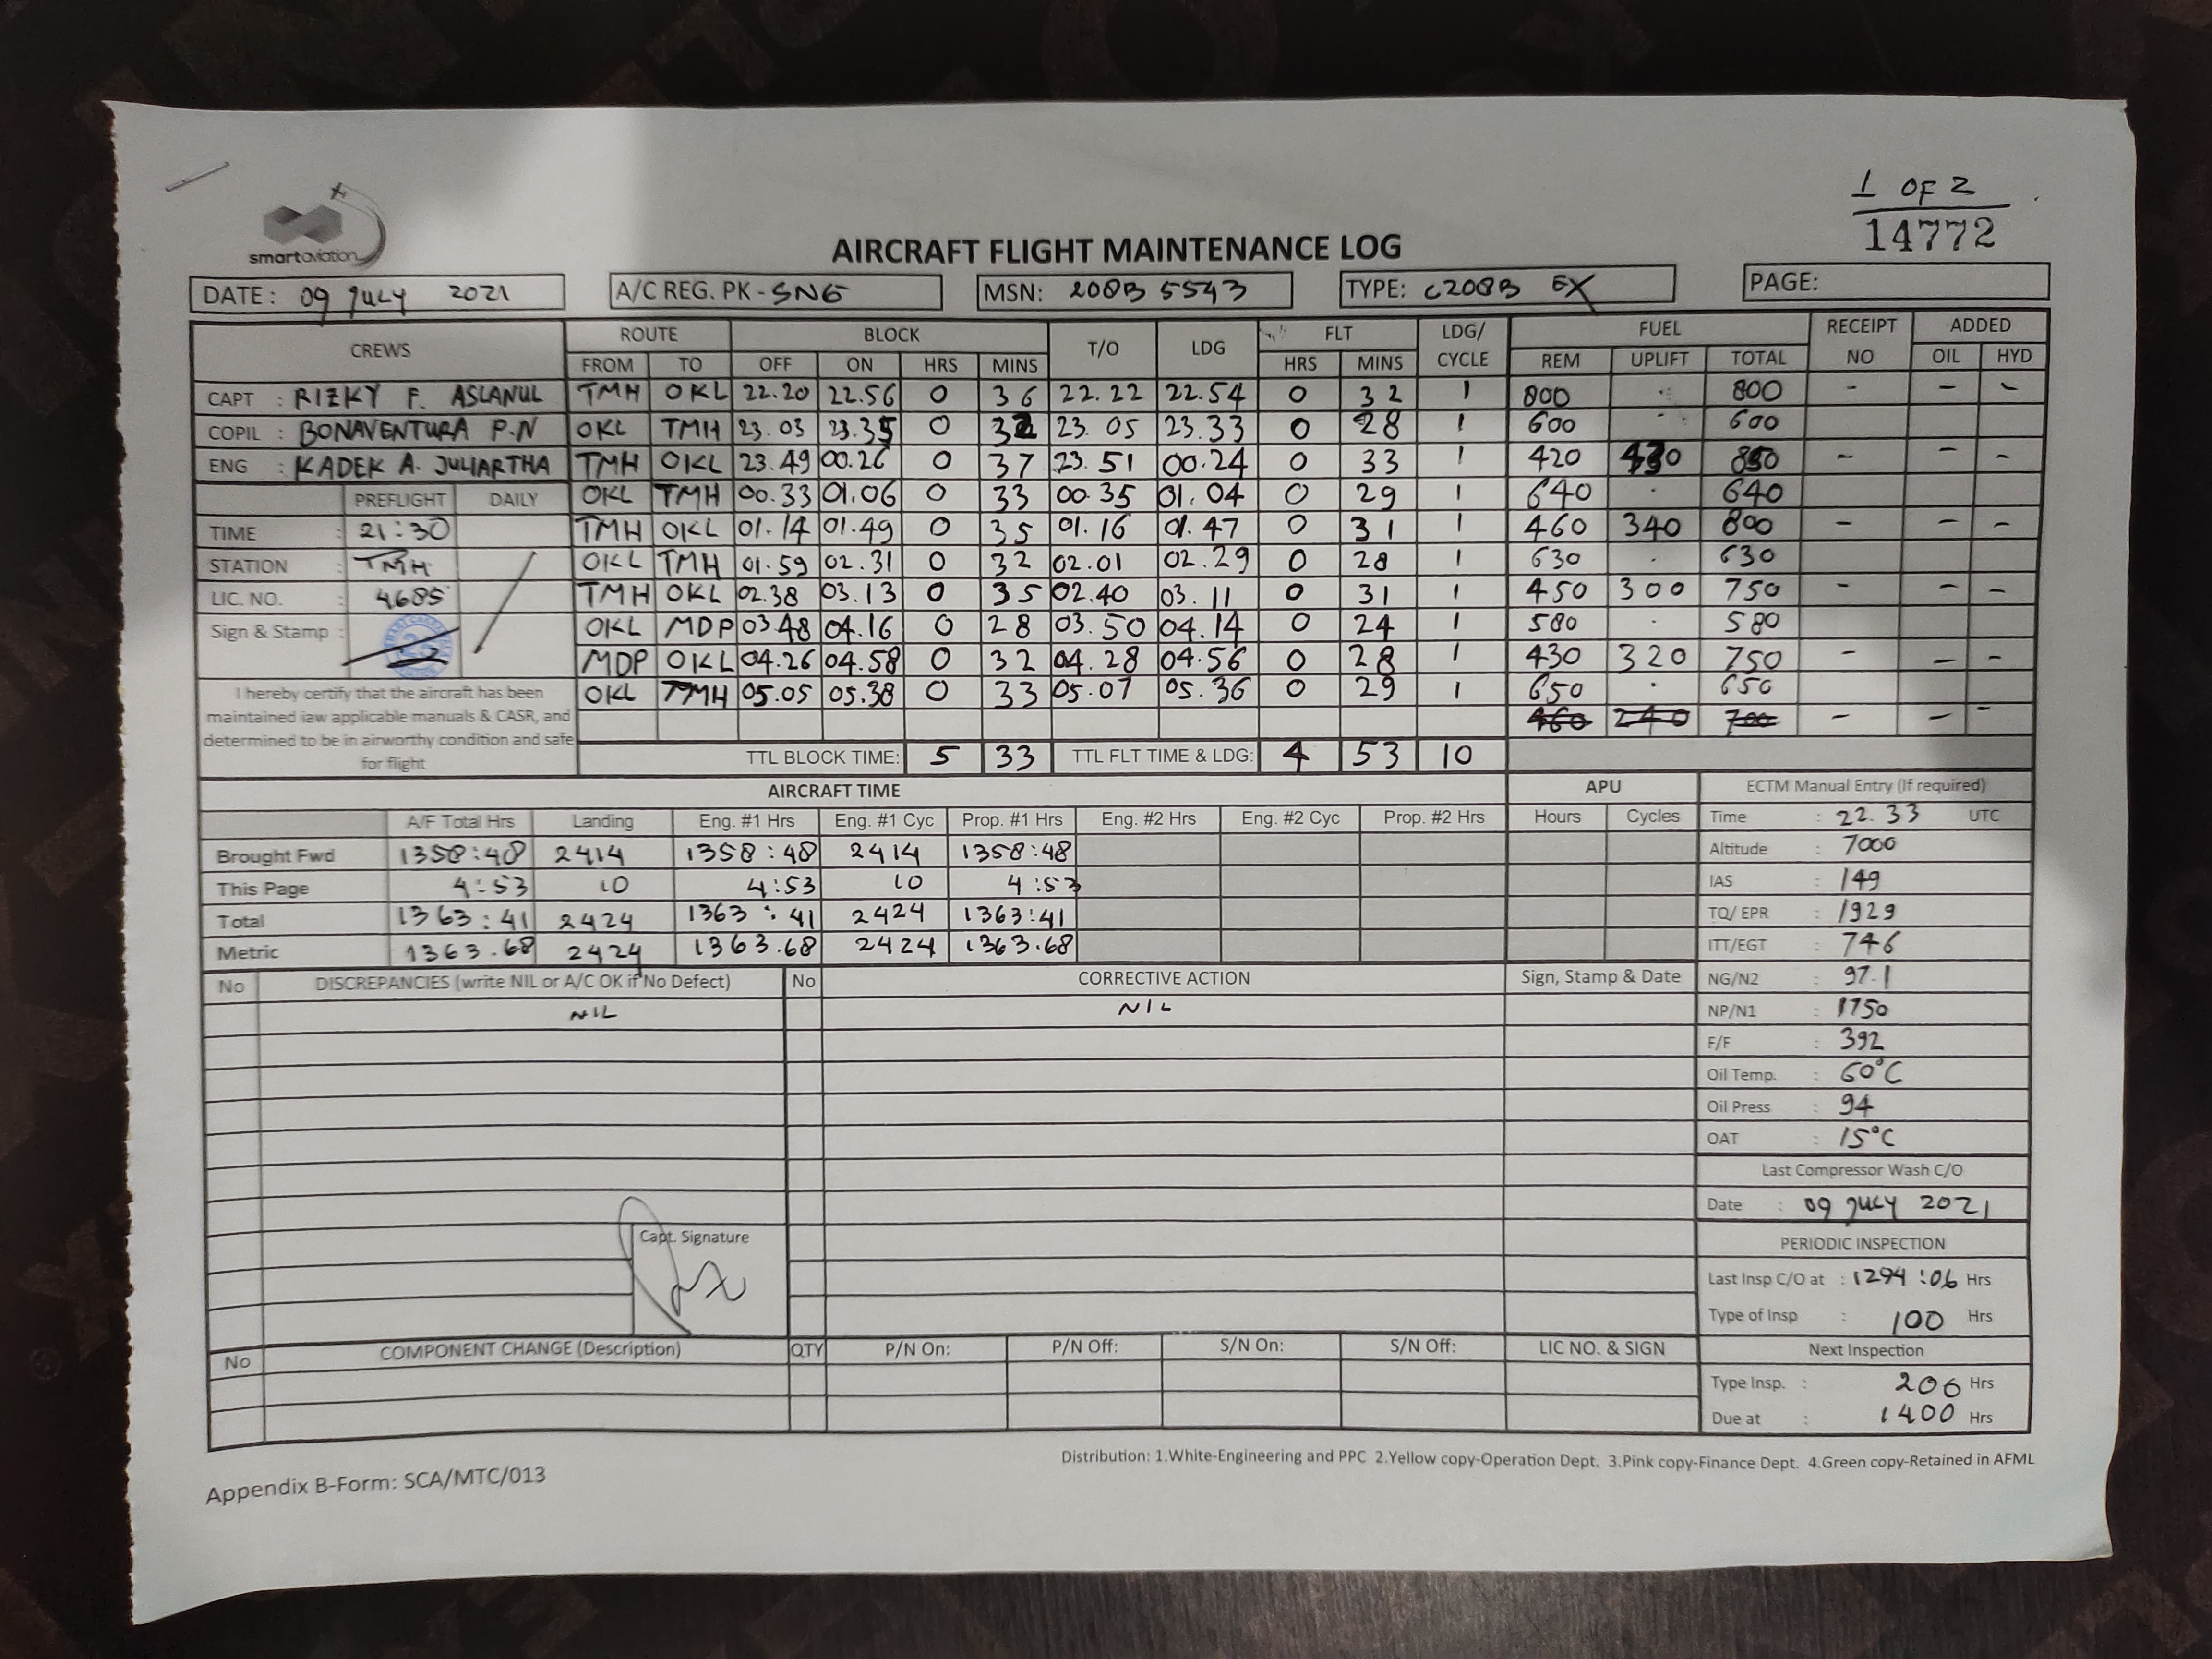 1 OF 2
14772
smartaviation
AIRCRAFT FLIGHT MAINTENANCE LOG
DATE: 09 JULY 2021 A/C REG. PK-SNG MSN: 208B 5543 TYPE: C208B EX PAGE:
CREWS ROUTE BLOCK T/O LDG FLT LDG/CYCLE FUEL RECEIPT NO ADDED
FROM TO OFF ON HRS MINS HRS MINS REM UPLIFT TOTAL OIL HYD
CAPT : RIZKY F. ASLANUL TMH OKL 22.20 22.56 0 36 22.22 22.54 0 32 1 800 - 800 - - -
COPIL : BONAVENTURA P.N OKL TMH 23.03 23.35 0 32 23.05 23.33 0 28 1 600 - 600
ENG : KADEK A. JULIARTHA TMH OKL 23.49 00.26 0 37 23.51 00.24 0 33 1 420 430 850 - - -
PREFLIGHT DAILY OKL TMH 00.33 01.06 0 33 00.35 01.04 0 29 1 640 . 640
TIME : 21:30 TMH OKL 01.14 01.49 0 35 01.16 01.47 0 31 1 460 340 800 - - -
STATION : TMH OKL TMH 01.59 02.31 0 32 02.01 02.29 0 28 1 630 . 630
LIC. NO. : 4685 TMH OKL 02.38 03.13 0 35 02.40 03.11 0 31 1 450 300 750 - - -
Sign & Stamp : OKL MDP 03.48 04.16 0 28 03.50 04.14 0 24 1 580 . 580
MDP OKL 04.26 04.58 0 32 04.28 04.56 0 28 1 430 320 750 - - -
OKL TMH 05.05 05.38 0 33 05.07 05.36 0 29 1 650 . 650
460 240 700 - - -
I hereby certify that the aircraft has been
maintained iaw applicable manuals & CASR, and
determined to be in airworthy condition and safe
for flight
TTL BLOCK TIME: 5 33 TTL FLT TIME & LDG: 4 53 10
AIRCRAFT TIME APU ECTM Manual Entry (If required)
A/F Total Hrs Landing Eng. #1 Hrs Eng. #1 Cyc Prop. #1 Hrs Eng. #2 Hrs Eng. #2 Cyc Prop. #2 Hrs Hours Cycles Time : 22.33 UTC
Brought Fwd 1358:48 2414 1358:48 2414 1358:48 Altitude : 7000
This Page 4:53 10 4:53 10 4:53 IAS : 149
Total 1363:41 2424 1363:41 2424 1363:41 TQ/ EPR : 1929
Metric 1363.68 2424 1363.68 2424 1363.68 ITT/EGT : 746
No DISCREPANCIES (write NIL or A/C OK if No Defect) No CORRECTIVE ACTION Sign, Stamp & Date NG/N2 : 97.1
NIL NIL NP/N1 : 1750
F/F : 392
Oil Temp. : 60°C
Oil Press : 94
OAT : 15°C
Last Compressor Wash C/O
Date : 09 JULY 2021
Capt. Signature
PERIODIC INSPECTION
Last Insp C/O at : 1294:06 Hrs
Type of Insp : 100 Hrs
No COMPONENT CHANGE (Description) QTY P/N On: P/N Off: S/N On: S/N Off: LIC NO. & SIGN Next Inspection
Type Insp. : 200 Hrs
Due at : 1400 Hrs
Distribution: 1.White-Engineering and PPC 2.Yellow copy-Operation Dept. 3.Pink copy-Finance Dept. 4.Green copy-Retained in AFML
Appendix B-Form: SCA/MTC/013